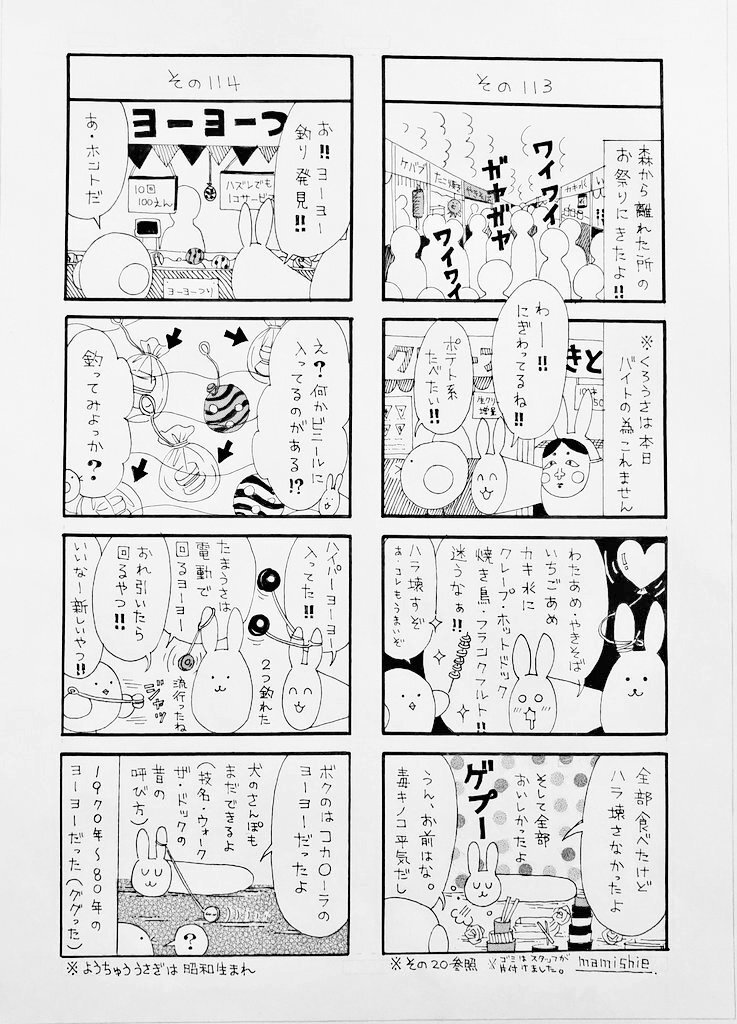 その113
森から離れた所の
お祭りにきたよ!!
ケバブ
たこ焼き
カキ氷
ワイワイ
ガヤガヤ
ワイワイ
※くろうさは本日
バイトの為これません
わー!!
にぎわってるね!!
ポテト系
たべたい!!
きと
生クリ
増量
わたあめ・やきそば
いちごあめ
カキ氷に
クレープ・ホットドック
焼き鳥・フランクフルト!!
迷うなぁ!!
ハラ壊すぞ
あ、コレもうまいぞ
!
全部食べたけど
ハラ壊さなかったよ
そして全部
おいしかったよ
ゲプー
うん、お前はな。
毒キノコ平気だし
※その20参照
※ゴミはスタッフが
片付けました。
mamishie
その114
ヨーヨーつ
お!!ヨーヨー
釣り発見!!
10回
100えん
ハズレでも
1コサービス
あ・ホントだ
ヨーヨーつり
え?何かビニールに
入ってるのがある!?
釣ってみよっか?
ハイパーヨーヨー
入ってた!!
2つ釣れた
たまうさは
電動で
回るヨーヨー
流行ったね
おれ引いたら
回るやつ!!
ジャッ
いいなー新しいやつ!!
ボクのはコカ〇ーラの
ヨーヨーだったよ
犬のさんぽも
まだできるよ
(技名・ウォーク
ザ・ドックの
昔の
呼び方)
?
1970年〜80年の
ヨーヨーだった(ググった)
※ようちゅううさぎは昭和生まれ